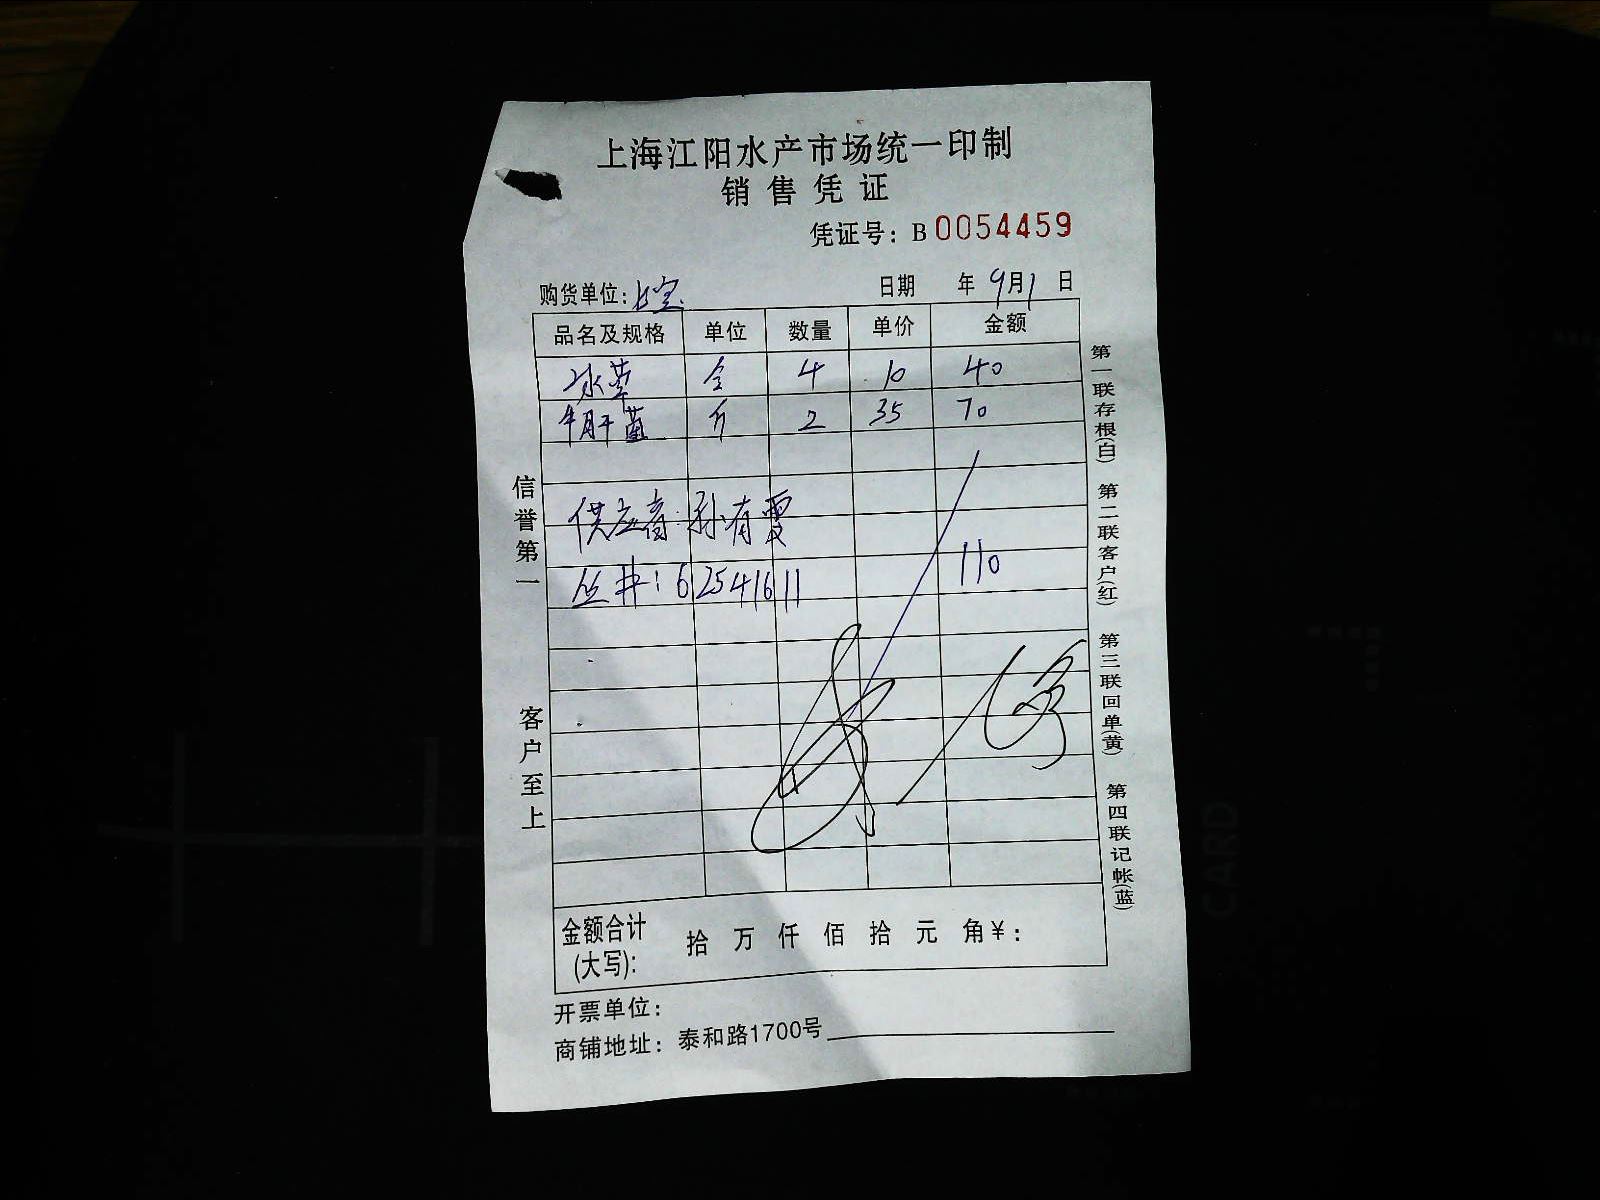 上海江阳水产市场统一印制
销售凭证
凭证号：B 0054459
购货单位： 日期 年 9月1日
品名及规格 单位 数量 单价 金额
冰草 4 10 40
牛肝菌 斤 2 35 70
供应商：孙有霞
110
信誉第一
客户至上
第一联存根(白) 第二联客户(红) 第三联回单(黄) 第四联记帐(蓝)
金额合计(大写)： 拾 万 仟 佰 拾 元 角￥：
开票单位：
商铺地址：泰和路1700号